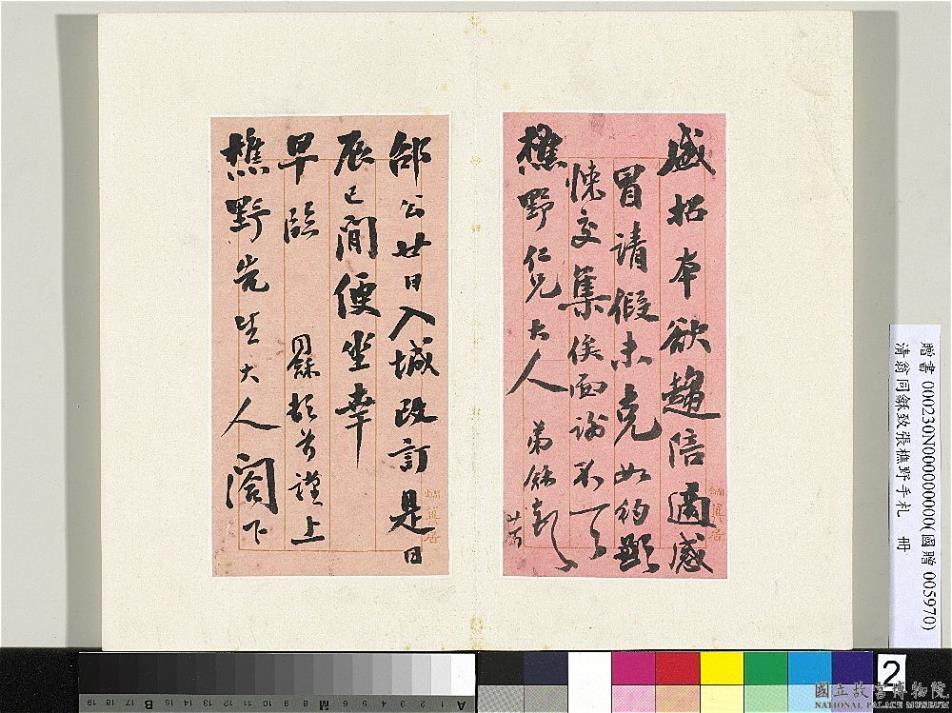 盛招本欲趨陪適感
冒請假未克如約慙
悚交集俟面謝不一一
樵野仁兄大人 弟龢頓首
廿日
郃公廿日入城改訂是日
辰巳間便坐幸
早臨 同龢頓首謹上
樵野先生大人閣下
贈書 000230N000000000(國贈 005970)
清翁同龢致張樵野手札 冊
2
國立故宮博物院
NATIONAL PALACE MUSEUM